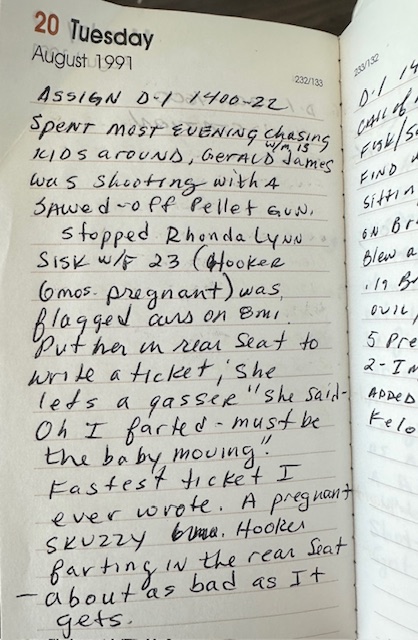 20 Tuesday
August 1991
232/133
ASSIGN D-1 1400-22
Spent most EVENING chasing
w/m 15
KIDS around, GERALD James
was shooting with A
SAWED-OFF Pellet GUN.
Stopped Rhonda Lynn
SISK W/F 23 (Hooker
6mos. pregnant) was
flagged cars on 8mi.
Put her in rear seat to
write a ticket, she
lets a gasser "she said-
Oh I farted - must be
the baby moving".
Fastest ticket I
ever wrote. A pregnant
SKUZZY Hooker
farting in the rear Seat
- about as bad as It
gets.
233/132
D-1 14
CALL of
FISK/S
FIND
Sittin
ON Br
Blew a
.19 Br
OUIL
5 Pre
2-Im
ADDED
Kelo